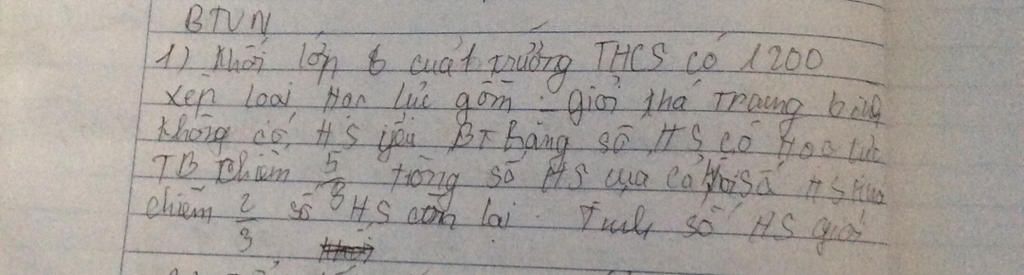 BTVN
1) Khối lớp 6 của 1 trường THCS có 1200
xếp loại Học lực gồm : giỏi khá Trung bình
không có HS yếu BT Bảng số HS có Học lực
TB chiếm 5/8 tổng số HS của cả khối số HS khá
chiếm 2/3 số HS còn lại. Tính số HS giỏi